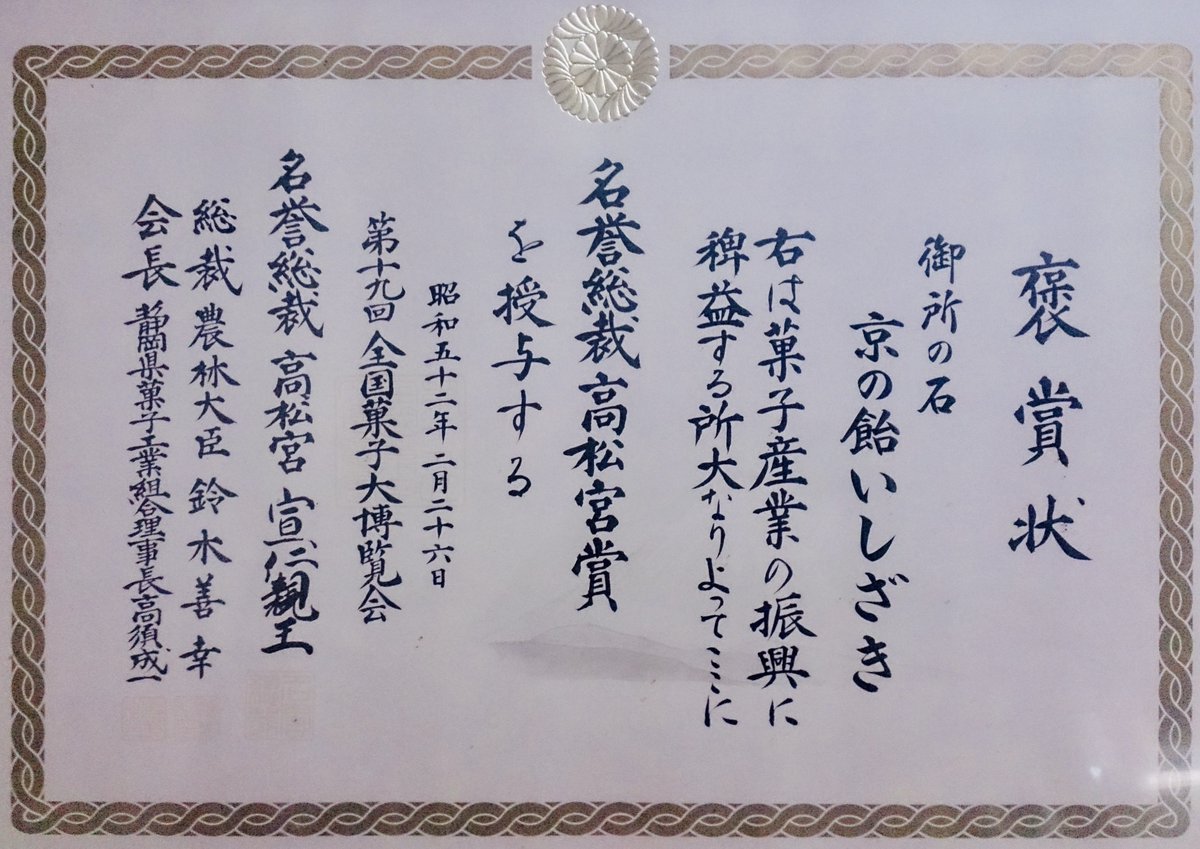 褒賞状
御所の石
京の飴いしざき
右は菓子産業の振興に
稗益する所大なりよってここに
名誉総裁高松宮賞
を授与する
昭和五十二年二月二十六日
第十九回全国菓子大博覧会
名誉総裁高松宮宣仁親王
総裁農林大臣鈴木善幸
会長静岡県菓子工業組合理事長高須成一